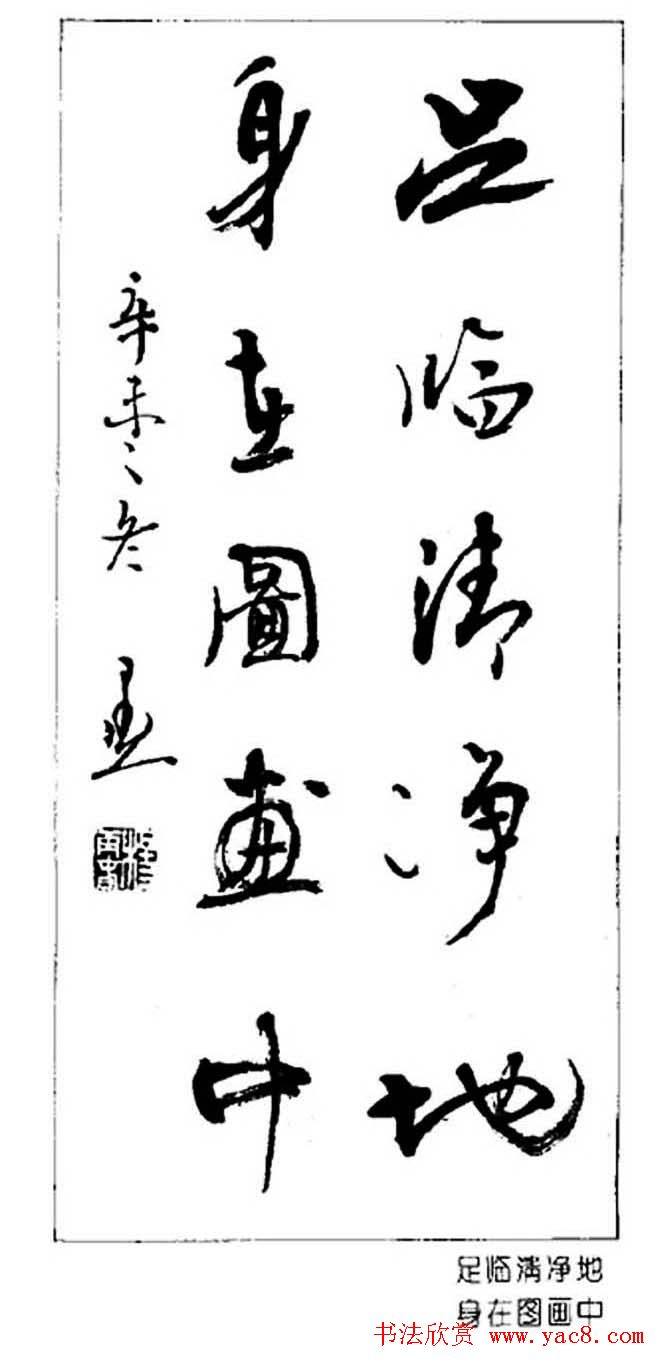 足临清净地
身在圖畫中
辛未之冬
足临清净地
身在图画中
书法欣赏 www.yac8.com